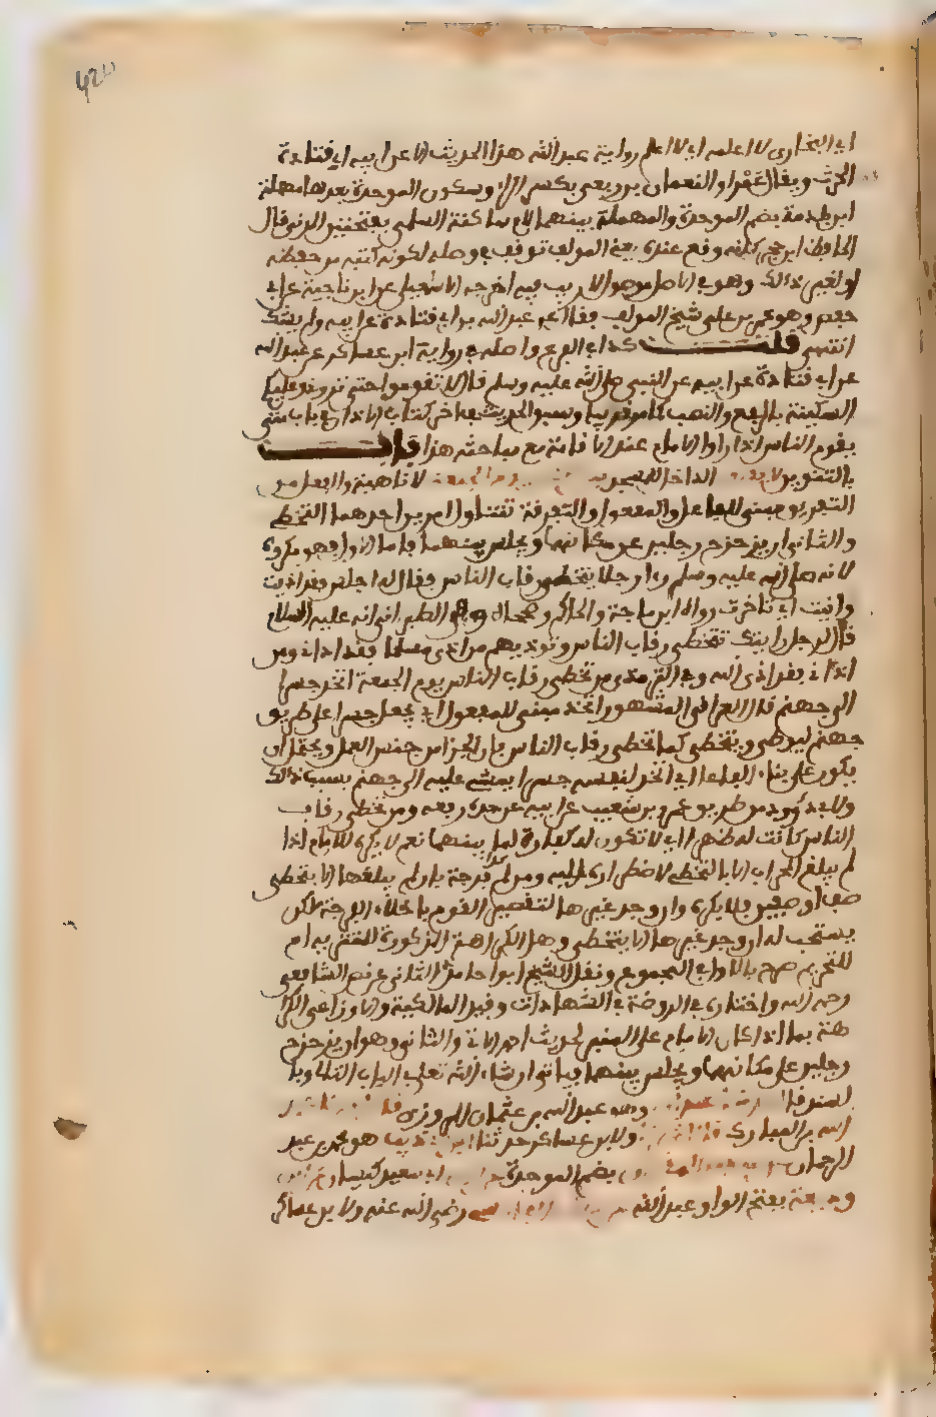 اي البخاري لا اعلمه اي لا اعلم رواية عبد الله هذا الحديث الا عن ابيه ابي قتادة
الحرث ويقال عمرا والنعمان بن ربعي بكسر الراء وسكون الموحدة بعدها مهملة
ابن بلدمة بضم الموحدة والمهملة بينهما لام ساكنة السلمي بفتحتين المدني قال
الحافظ ابن حجر كانه وقع عنده يعني المولف توقف في وصله لكونه كتبه من حفظه
او لغير ذالك وهو في الاصل موصول لا ريب فيه اخرجه الاسمعيلي عن ابن ناجية عن ابي
حفص وهو عمر بن علي شيخ المولف فقال عن عبد الله بن ابي قتادة عن ابيه ولم يشك
انتهى قلت كذا في الفرع واصله في رواية ابن عساكر عن عبد الله
عن ابي قتادة عن ابيه عن النبي صلى الله عليه وسلم قال لا تقوموا حتى تروني وعليكم
السكينة بالرفع والنصب كما مر قريبا وسبق الحديث في اخر كتاب الاذان في باب متى
يقوم الناس اذا راوا الامام عند الاقامة مع مباحثه هذا باب
بالتنوين لا يفرق الداخل المسجد بين يوم الجمعة لا ناهية والفعل من
التفريق مبني للفاعل او المفعول والتفرقة تتناول امرين احدهما التخطي
والثاني ان يزحزح رجلين عن مكانهما ويجلس بينهما فاما الاول فهو مكروه
لانه صلى الله عليه وسلم راى رجلا يتخطى رقاب الناس فقال له اجلس فقد اذيت
وانيت اي تاخرت رواه ابن ماجة والحاكم وصححاه الطبراني انه عليه السلام
قال لرجل رايتك تتخطى رقاب الناس وتوذيهم من اذى مسلما فقد اذاني ومن
اذاني فقد اذى الله وفي الترمذي من تخطى رقاب الناس يوم الجمعة اتخذ جسرا
الى جهنم قال العراقي المشهور اتخذ مبني للمفعول اي يجعل جسرا على طريق
جهنم ليوطى ويتخطى كما تخطى رقاب الناس فان الجزاء من جنس العمل ويحتمل ان
يكون على بناء الفاعل اي اتخذ لنفسه جسرا يمشي عليه الى جهنم بسبب ذالك
ولابي داوود من طريق عمرو بن شعيب عن ابيه عن جده رفعه ومن تخطى رقاب
الناس كانت له ظهرا اي لا تكون له كفارة لما بينهما نعم لا يكره للامام اذا
لم يبلغ المحراب الا بالتخطي لاضطراره اليه ومن لم فرجة بان لم يبلغها الا بتخطي
صف او صفين فلا يكره وان وجد غيرها لتقصير القوم باخلاء الفرجة لكن
يستحب له ان وجد غيرها الا يتخطى وهل الكراهة المذكورة للتنزيه ام
للتحريم صرح بالاول في المجموع ونقل الشيخ ابو حامد الثاني عن نص الشافعي
رحمه الله واختاره في الروضة في الشهادات وقيد المالكية والاوزاعي الكرا
هة بما اذا كان الامام على المنبر لحديث احمد الاتي والثاني وهو ان يزحزح
رجلين على مكانهما ويجلس بينهما فياتي ان شاء الله تعلى في الباب التالي وبا
لسند قال عبدان وهو عبد الله بن عثمان المروزي قال
الله بن المبارك قال ولابن عساكر حدثنا ابن ابي ذيب هو محمد بن عبد
الرحمان عن سعيد المقبري بضم الموحدة عن ابي سعيد كيسان عن ابن
وديعة بفتح الواو عبد الله عن سلمان الفارسي رضي الله عنه ولابن عساكر